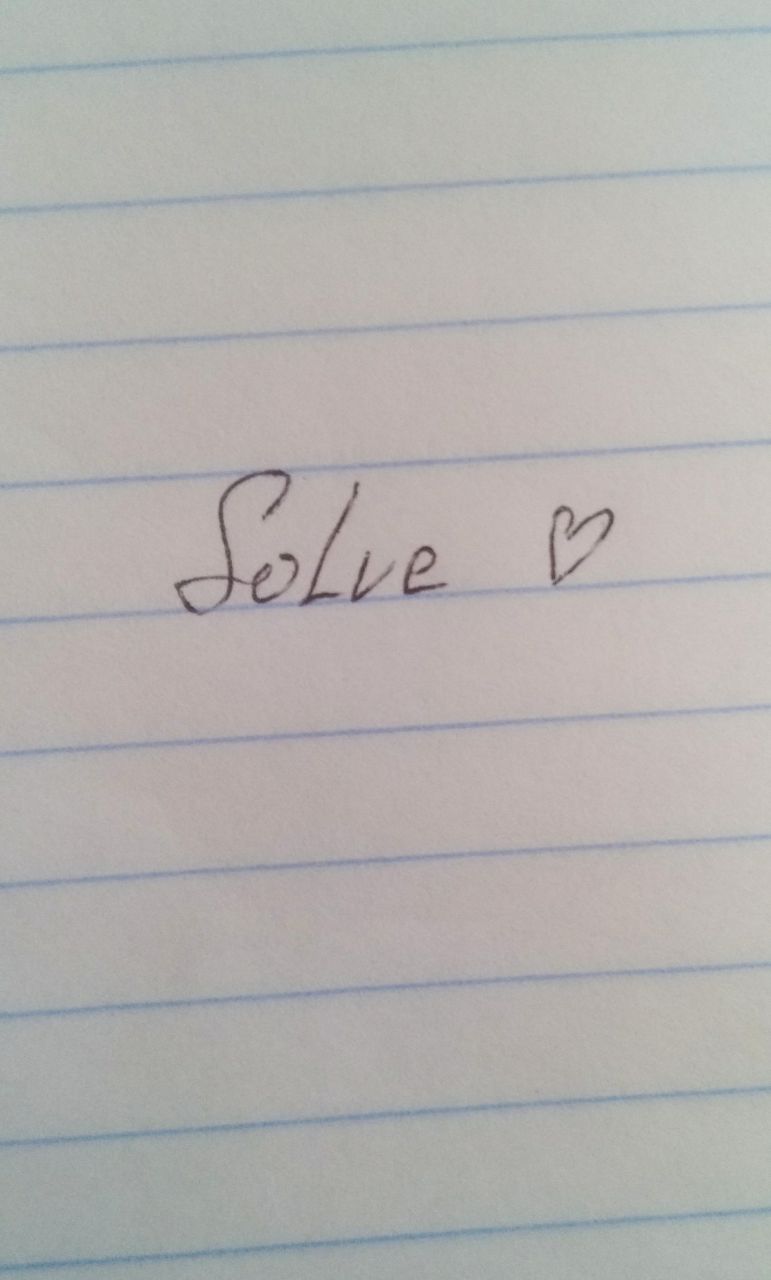 Solve ♡